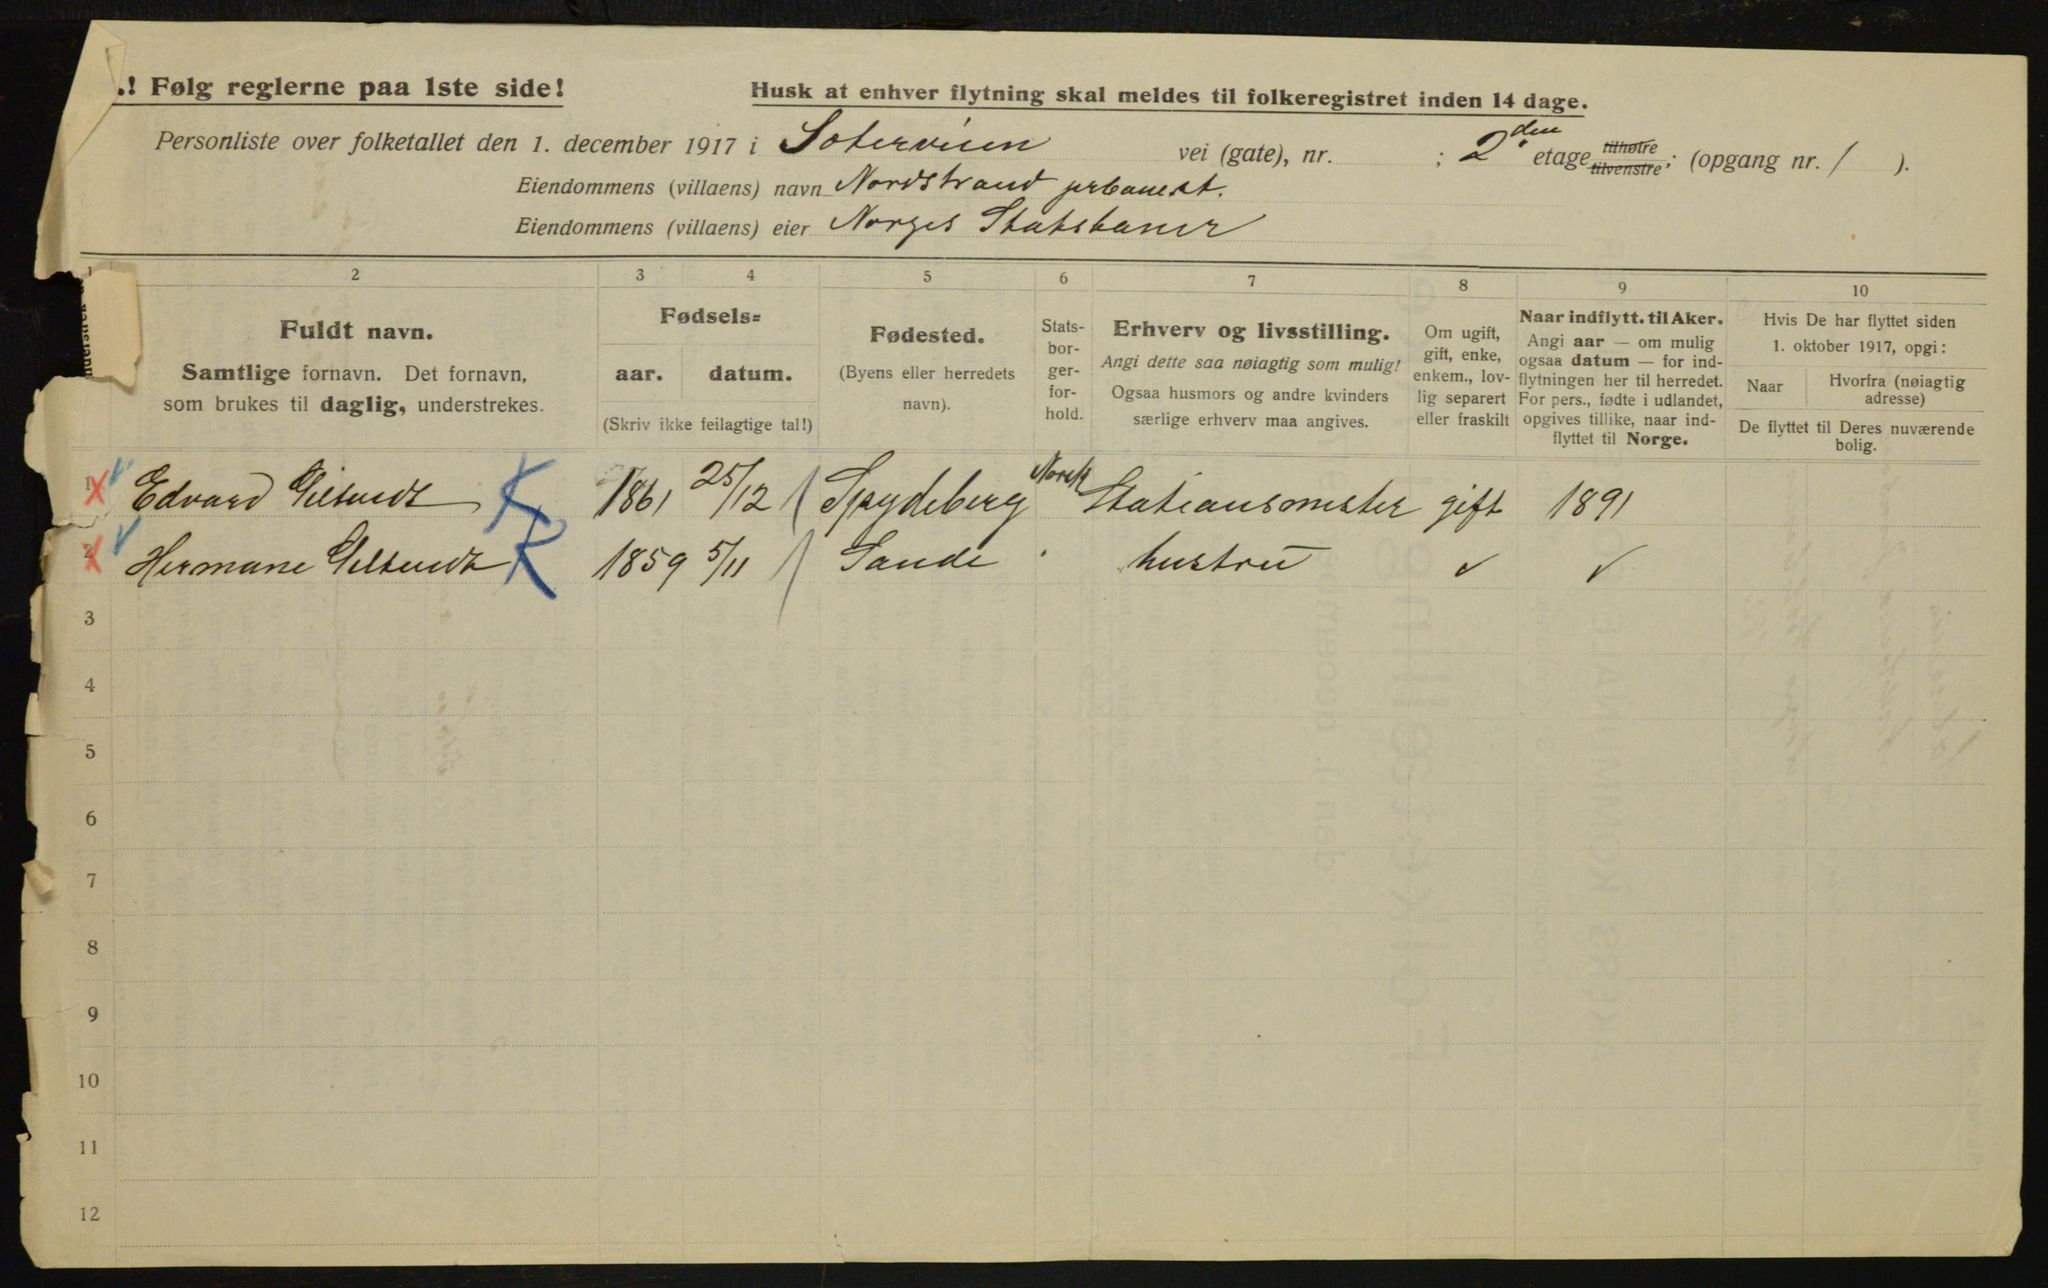 .! Følg reglerne paa 1ste side!
Husk at enhver flytning skal meldes til folkeregistret inden 14 dage.
Personliste over folketallet den 1. december 1917 i Soterveien vei (gate), nr. ; 2den etage tilhøire tilvenstre; (opgang nr. / ).
Eiendommens (villaens) navn Nordstrand
Eiendommens (villaens) eier Norges Statsbaner
1 2 3 4 5 6 7 8 9 10
Fuldt navn.
Samtlige fornavn. Det fornavn,
som brukes til daglig, understrekes.
Fødsels=
aar. datum.
(Skriv ikke feilagtige tal!)
Fødested.
(Byens eller herredets
navn).
Stats-
bor-
ger-
for-
hold.
Erhverv og livsstilling.
Angi dette saa nøiagtig som mulig!
Ogsaa husmors og andre kvinders
særlige erhverv maa angives.
Om ugift,
gift, enke,
enkem., lov-
lig separert
eller fraskilt
Naar indflytt. til Aker.
Angi aar — om mulig
ogsaa datum — for ind-
flytningen her til herredet.
For pers., fødte i udlandet,
opgives tillike, naar ind-
flyttet til Norge.
Hvis De har flyttet siden
1. oktober 1917, opgi:
Naar
Hvorfra (nøiagtig
adresse)
De flyttet til Deres nuværende
bolig.
1 Edvard K 1861 25/12 Spydeberg Norsk Stationsmester gift 1891
2 Hermane R 1859 5/11 Sande hustru
3
4
5
6
7
8
9
10
11
12